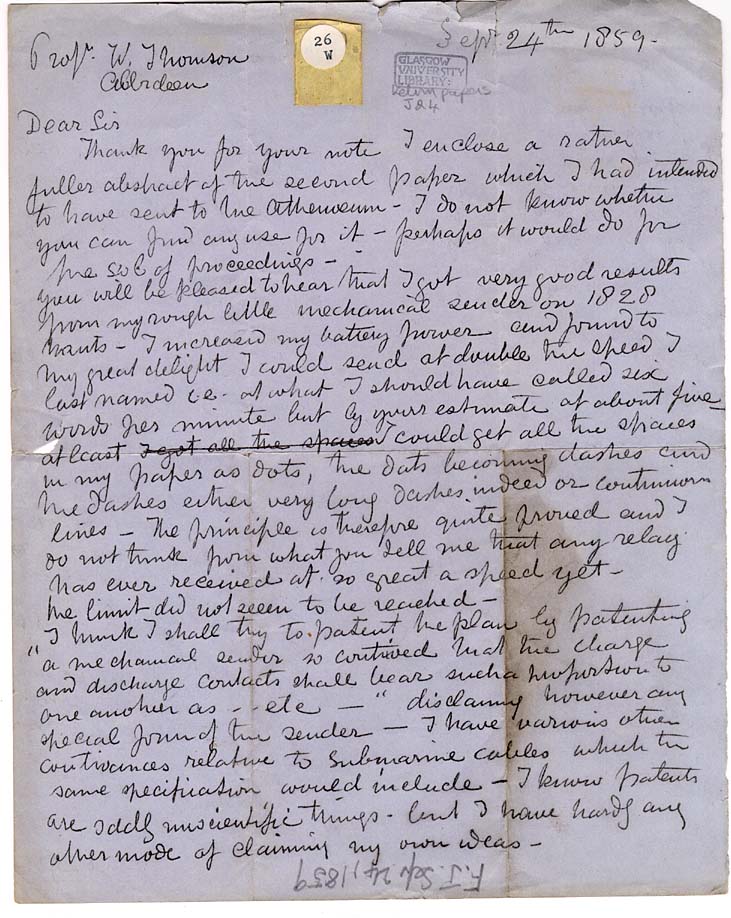 26
W
Sept 24th 1859-
Profr. W. Thomson
Aberdeen
GLASGOW
UNIVERSITY
LIBRARY:
Kelvin papers
J24
Dear Sir
Thank you for your note I enclose a rather
fuller abstract of the second paper which I had intended
to have sent to the Atheneum - I do not know whether
you can find any use for it - perhaps it would do for
the of proceedings -
you will be pleased to hear that I got very good results
from my rough little mechanical sender on 1828
knots - I increased my battery power and found to
my great delight I could send at double the speed I
last named i.e. at what I should have called six
words per minute but by your estimate at about five
at least I got all the spaces I could get all the spaces
in my paper as dots, the dots becoming dashes and
the dashes either very long dashes indeed or continuous
lines - The principle is therefore quite proved and I
do not think from what you tell me that any relay
has ever received at so great a speed yet -
the limit did not seem to be reached -
"I think I shall try to patent the plan by patenting
a mechanical sender so contrived that the charge
and discharge contacts shall bear such a proportion to
one another as - - etc - " disclaiming however any
special form of the sender - I have various other
contrivances relative to Submarine cables which the
same specification would include - I know patents
are sadly unscientific things - but I have hardly any
other mode of claiming my own ideas -
F.J. Sep 24, 1859